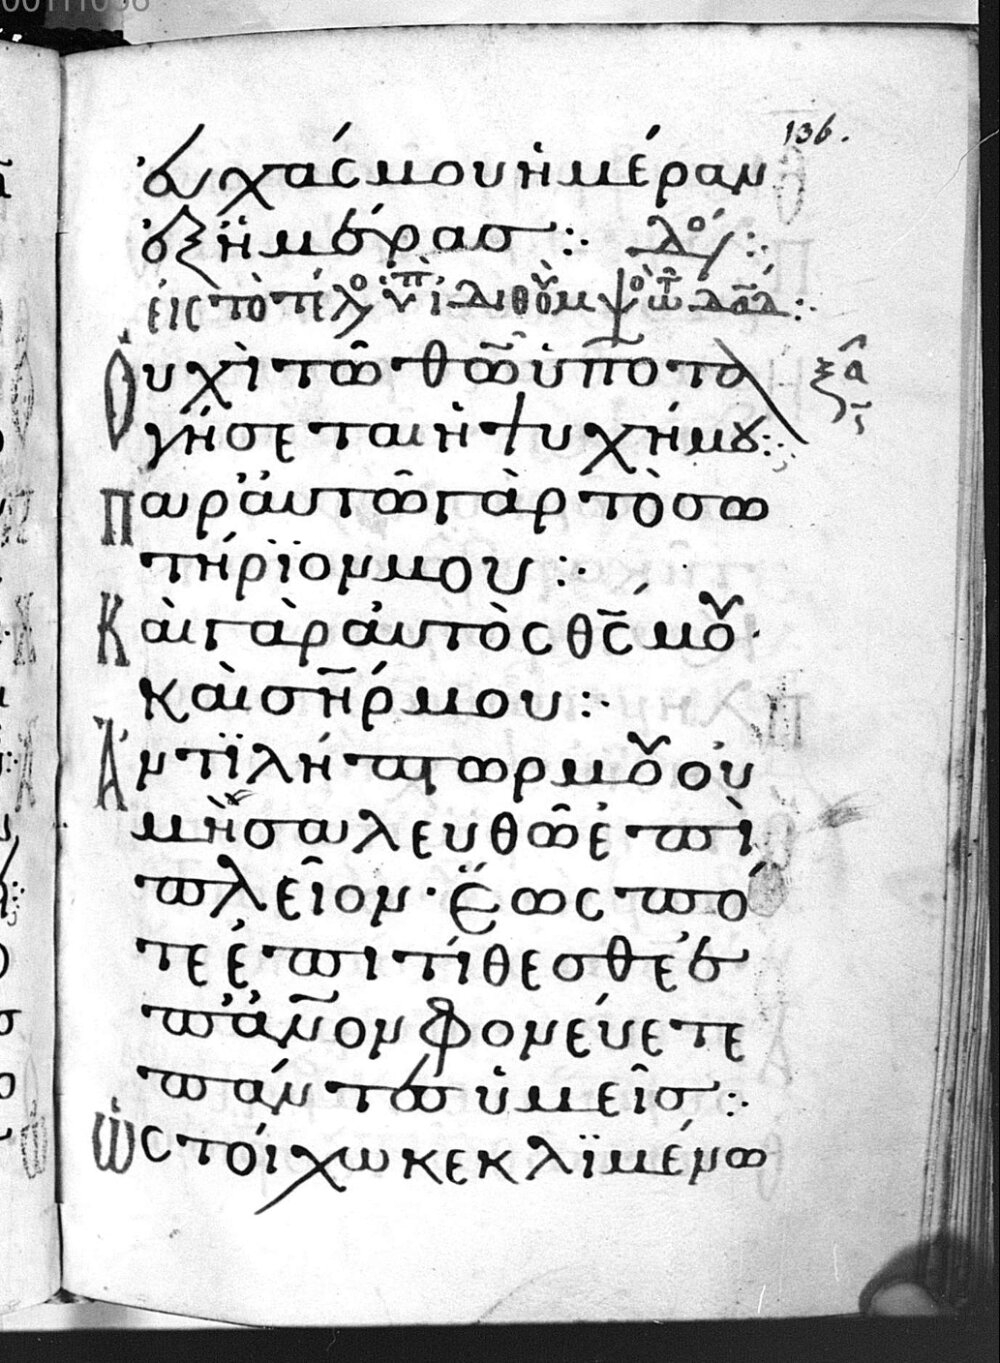 136.
ἐυχάς μου ἡμέραν
ἐξ ἡμέρας :· 
εἰς τὸ τέλο ὑπ ἰδιθοὺμ ψ τῶ δαδ :·
Οὐχὶ τῶ θῶ ὑποτα ξα
γήσεται ἡ ψυχή μου :·
Παρ ἀυτῶ γὰρ τὸ σω
τήρϊον μου :·
Κὰι γὰρ ἀυτὸς θς μου·
κὰι σηρ μου :·
Ἀντϊλήπτωρ μου οὐ
μὴ σαλευθῶ ἐπὶ
πλεῖον· Ἕως πό
τε ἐπιτίθεσθε ἐ
π ἀνον φονέυετε
πάντες ὑμεῖς :·
Ὡς τοίχω κεκλϊμένω